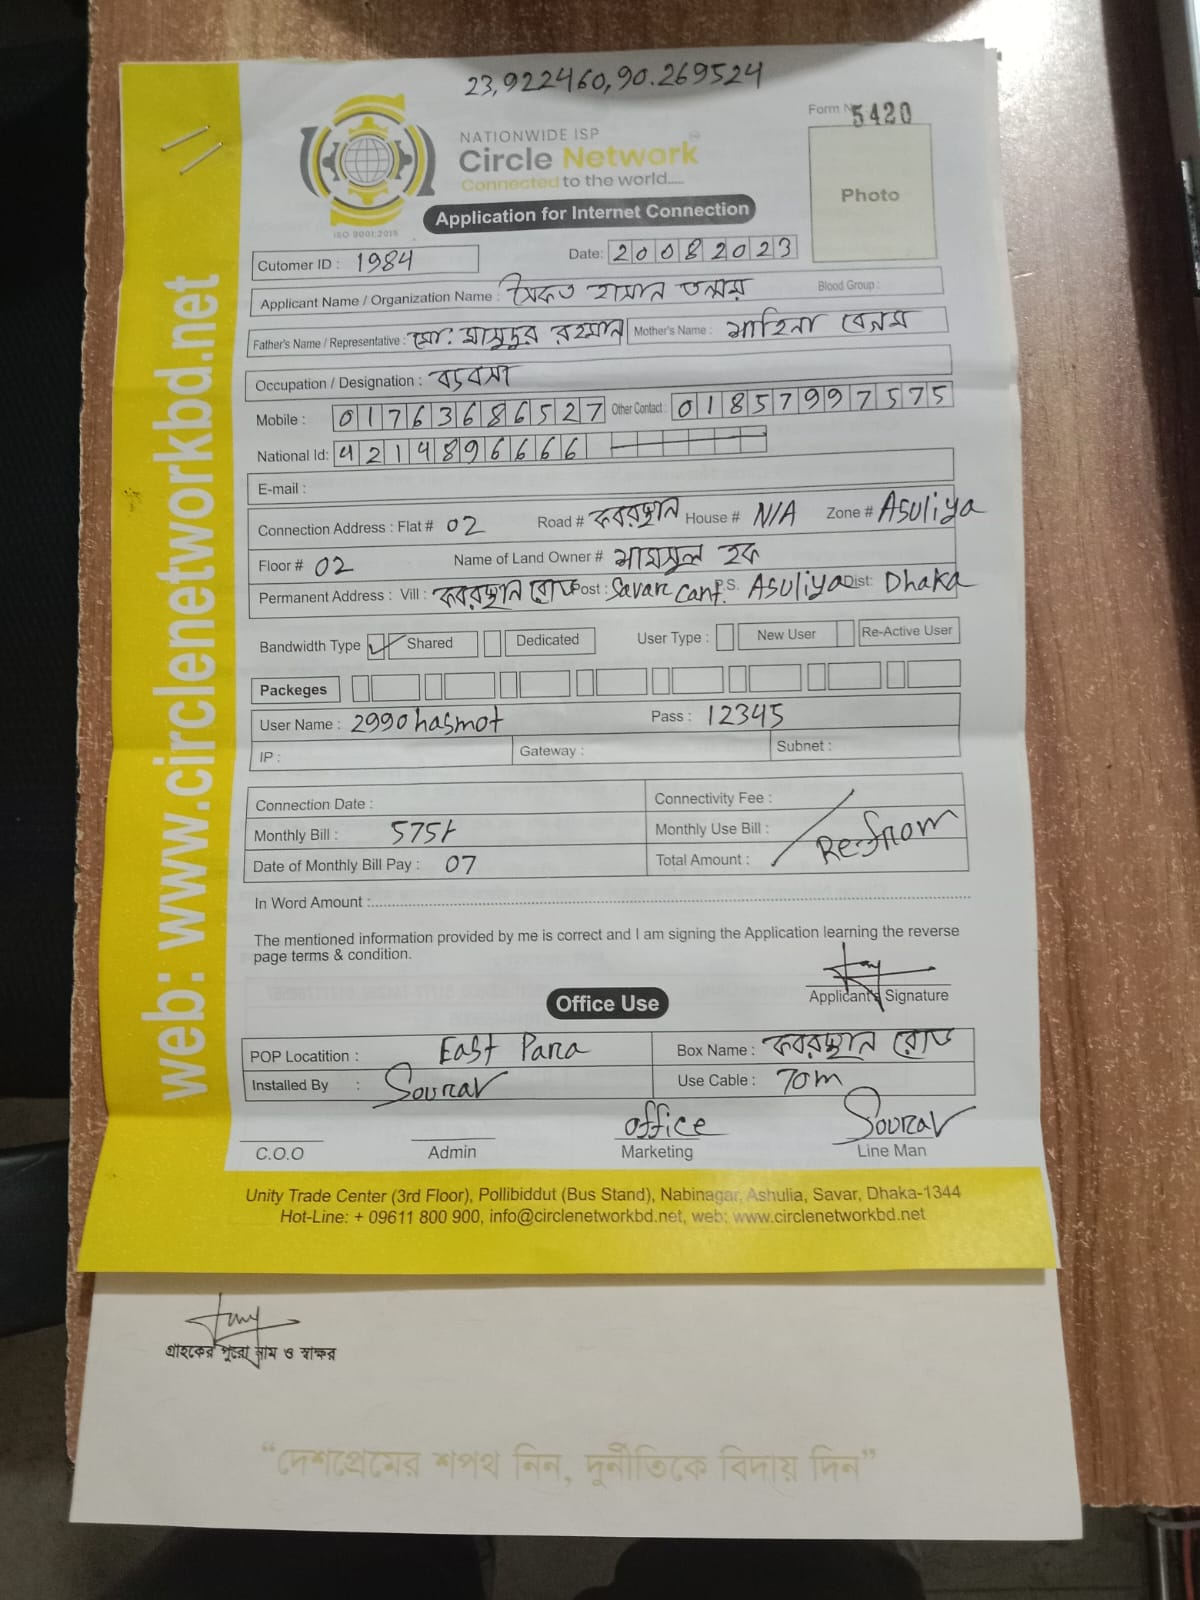 23,922460,90.269524
Form No 5420
NATIONWIDE ISP
Circle Network
Connected to the world.....
ISO 9001:2015
Photo
Application for Internet Connection
Cutomer ID : 1984 Date: 20082023
Applicant Name / Organization Name : সৈকত হাসান তন্ময় Blood Group :
Father's Name / Representative : মো: মাসুদুর রহমান Mother's Name : মাহিনা বেগম
Occupation / Designation : ব্যবসা
Mobile : 01763686527 Other Contact : 01857997575
National Id: 4214896666
E-mail :
Connection Address : Flat # 02 Road # কবরস্থান House # N/A Zone # Asuliya
Floor # 02 Name of Land Owner # সামসুল হক
Permanent Address : Vill : কবরস্থান রোড Post : Savar Cant. P.S. Asuliya Dist: Dhaka
Bandwidth Type Shared Dedicated User Type : New User Re-Active User
Packeges
User Name : 2990hasmot Pass : 12345
IP : Gateway : Subnet :
Connection Date : Connectivity Fee :
Monthly Bill : 575/- Monthly Use Bill :
Date of Monthly Bill Pay : 07 Total Amount :
In Word Amount :
The mentioned information provided by me is correct and I am signing the Application learning the reverse
page terms & condition.
Applicant's Signature
Office Use
POP Locatition : East Para Box Name : কবরস্থান রোড
Installed By : Sourav Use Cable : 70m
office Sourav
C.O.O Admin Marketing Line Man
Unity Trade Center (3rd Floor), Pollibiddut (Bus Stand), Nabinagar, Ashulia, Savar, Dhaka-1344
Hot-Line: + 09611 800 900, info@circlenetworkbd.net, web: www.circlenetworkbd.net
web: www.circlenetworkbd.net
গ্রাহকের পুরো নাম ও স্বাক্ষর
“দেশপ্রেমের শপথ নিন, দুর্নীতিকে বিদায় দিন”